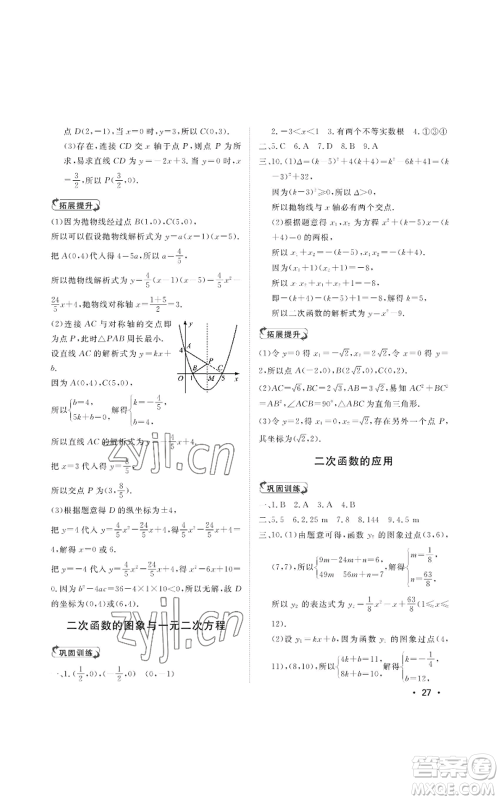 点 D(2,-1),所以对称轴为 x=2.
(3)存在,连接 CD 交 x 轴于点 P,所以点 P 为所求,易求直线 CD 为 y=-2x+3. 当 y=0 时,x=
3/2,所以 P(3/2,0).
拓展提升
(1)因为抛物线经过点 B(1,0),C(5,0),
所以可以假设抛物线解析式为 y=a(x-1)(x-5),
把 A(0,4)代入得 4=5a,所以 a=4/5,
所以抛物线解析式为 y=4/5(x-1)(x-5)=4/5x²-
24/5x+4,抛物线对称轴 x=(1+5)/2=3.
(2)连接 AC 与对称轴的交点即
为点 P,此时△PAB 周长最小.
设直线 AC 的解析式为 y=kx+
b.
所以{b=4, 5k+b=0, 解得{k=-4/5, b=4,
所以直线 AC 的解析式为 y=-4/5x+4,
把 x=3 代入得 y=8/5,
所以交点 P(3,8/5).
(3)根据题意若 D 的纵坐标为 4,
把 y=4 代入 y=4/5x²-24/5x+4 得 x=0 或 6,
把 y=-4 代入 y=4/5x²-24/5x+4 得 x²-6x+10=
0,因为 b²-4ac=36-4×10<0,所以无解. 故 D
的坐标为(0,4),(6,4).
二次函数的图象与一元二次方程
巩固训练
一、1.(1/2,0),(-1/2,0) (0,-1)
2.-3<x<1 3.有两个不等实数根 4.①③④
二、5.C 6.A 7.D 8.C 9.B
三、10.(1)Δ=(k-5)²+4(k+4)=k²-6k+41=(k
-3)²+32,
因为(k-3)²≥0,所以Δ>0.
所以抛物线与 x 轴必有两个交点.
(2)根据题意得 x₁、x₂ 是方程 x²-(k-5)x-(k+4)
=0 的两根,
所以 x₁+x₂=k-5,x₁x₂=-(k+4),
因为(x₁+1)(x₂+1)=-8,
所以 x₁x₂+(x₁+x₂)+1=-8,
即-(k+4)+(k-5)+1=-8,解得 k=5.
所以二次函数的解析式为 y=x²-9.
拓展提升
(1)令 y=0 得 x₁=-√2,x₂=2√2,所以点 A(-√2,
0),点 B(2√2,0),令 x=0 得 y=2,所以 C(0,2).
(2)AC=√6,BC=2√3,AB=3√2,因为 AC²+BC²
=AB²,所以△ABC 是直角三角形.
(3)令 y=2,得 x₁=0,x₂=√2,所以存在另外一个点,
其坐标为(√2,2).
二次函数的应用
巩固训练
一、1.B 2.D 3.A 4.A
二、5.5 6.2,25 m 7.8 8.144 9.4,5 m
三、10.(1)由题意可得,函数 y₂ 的图象过点(3,6),
(7,7),所以{9m-24m+n=6, 49m-56m+n=7, 解得{m=1/8, n=63/8,
所以 y₂ 的表达式为 y₂=1/8x²-x+63/8(1≤x≤
12).
(2)设 y₁=kx+b,因为函数 y₁ 的图象过点(4,
11),(8,10),所以{4k+b=11, 8k+b=10, 解得{k=-1/4, b=12,
• 27 •
zyjl.cn
zyjl.cn